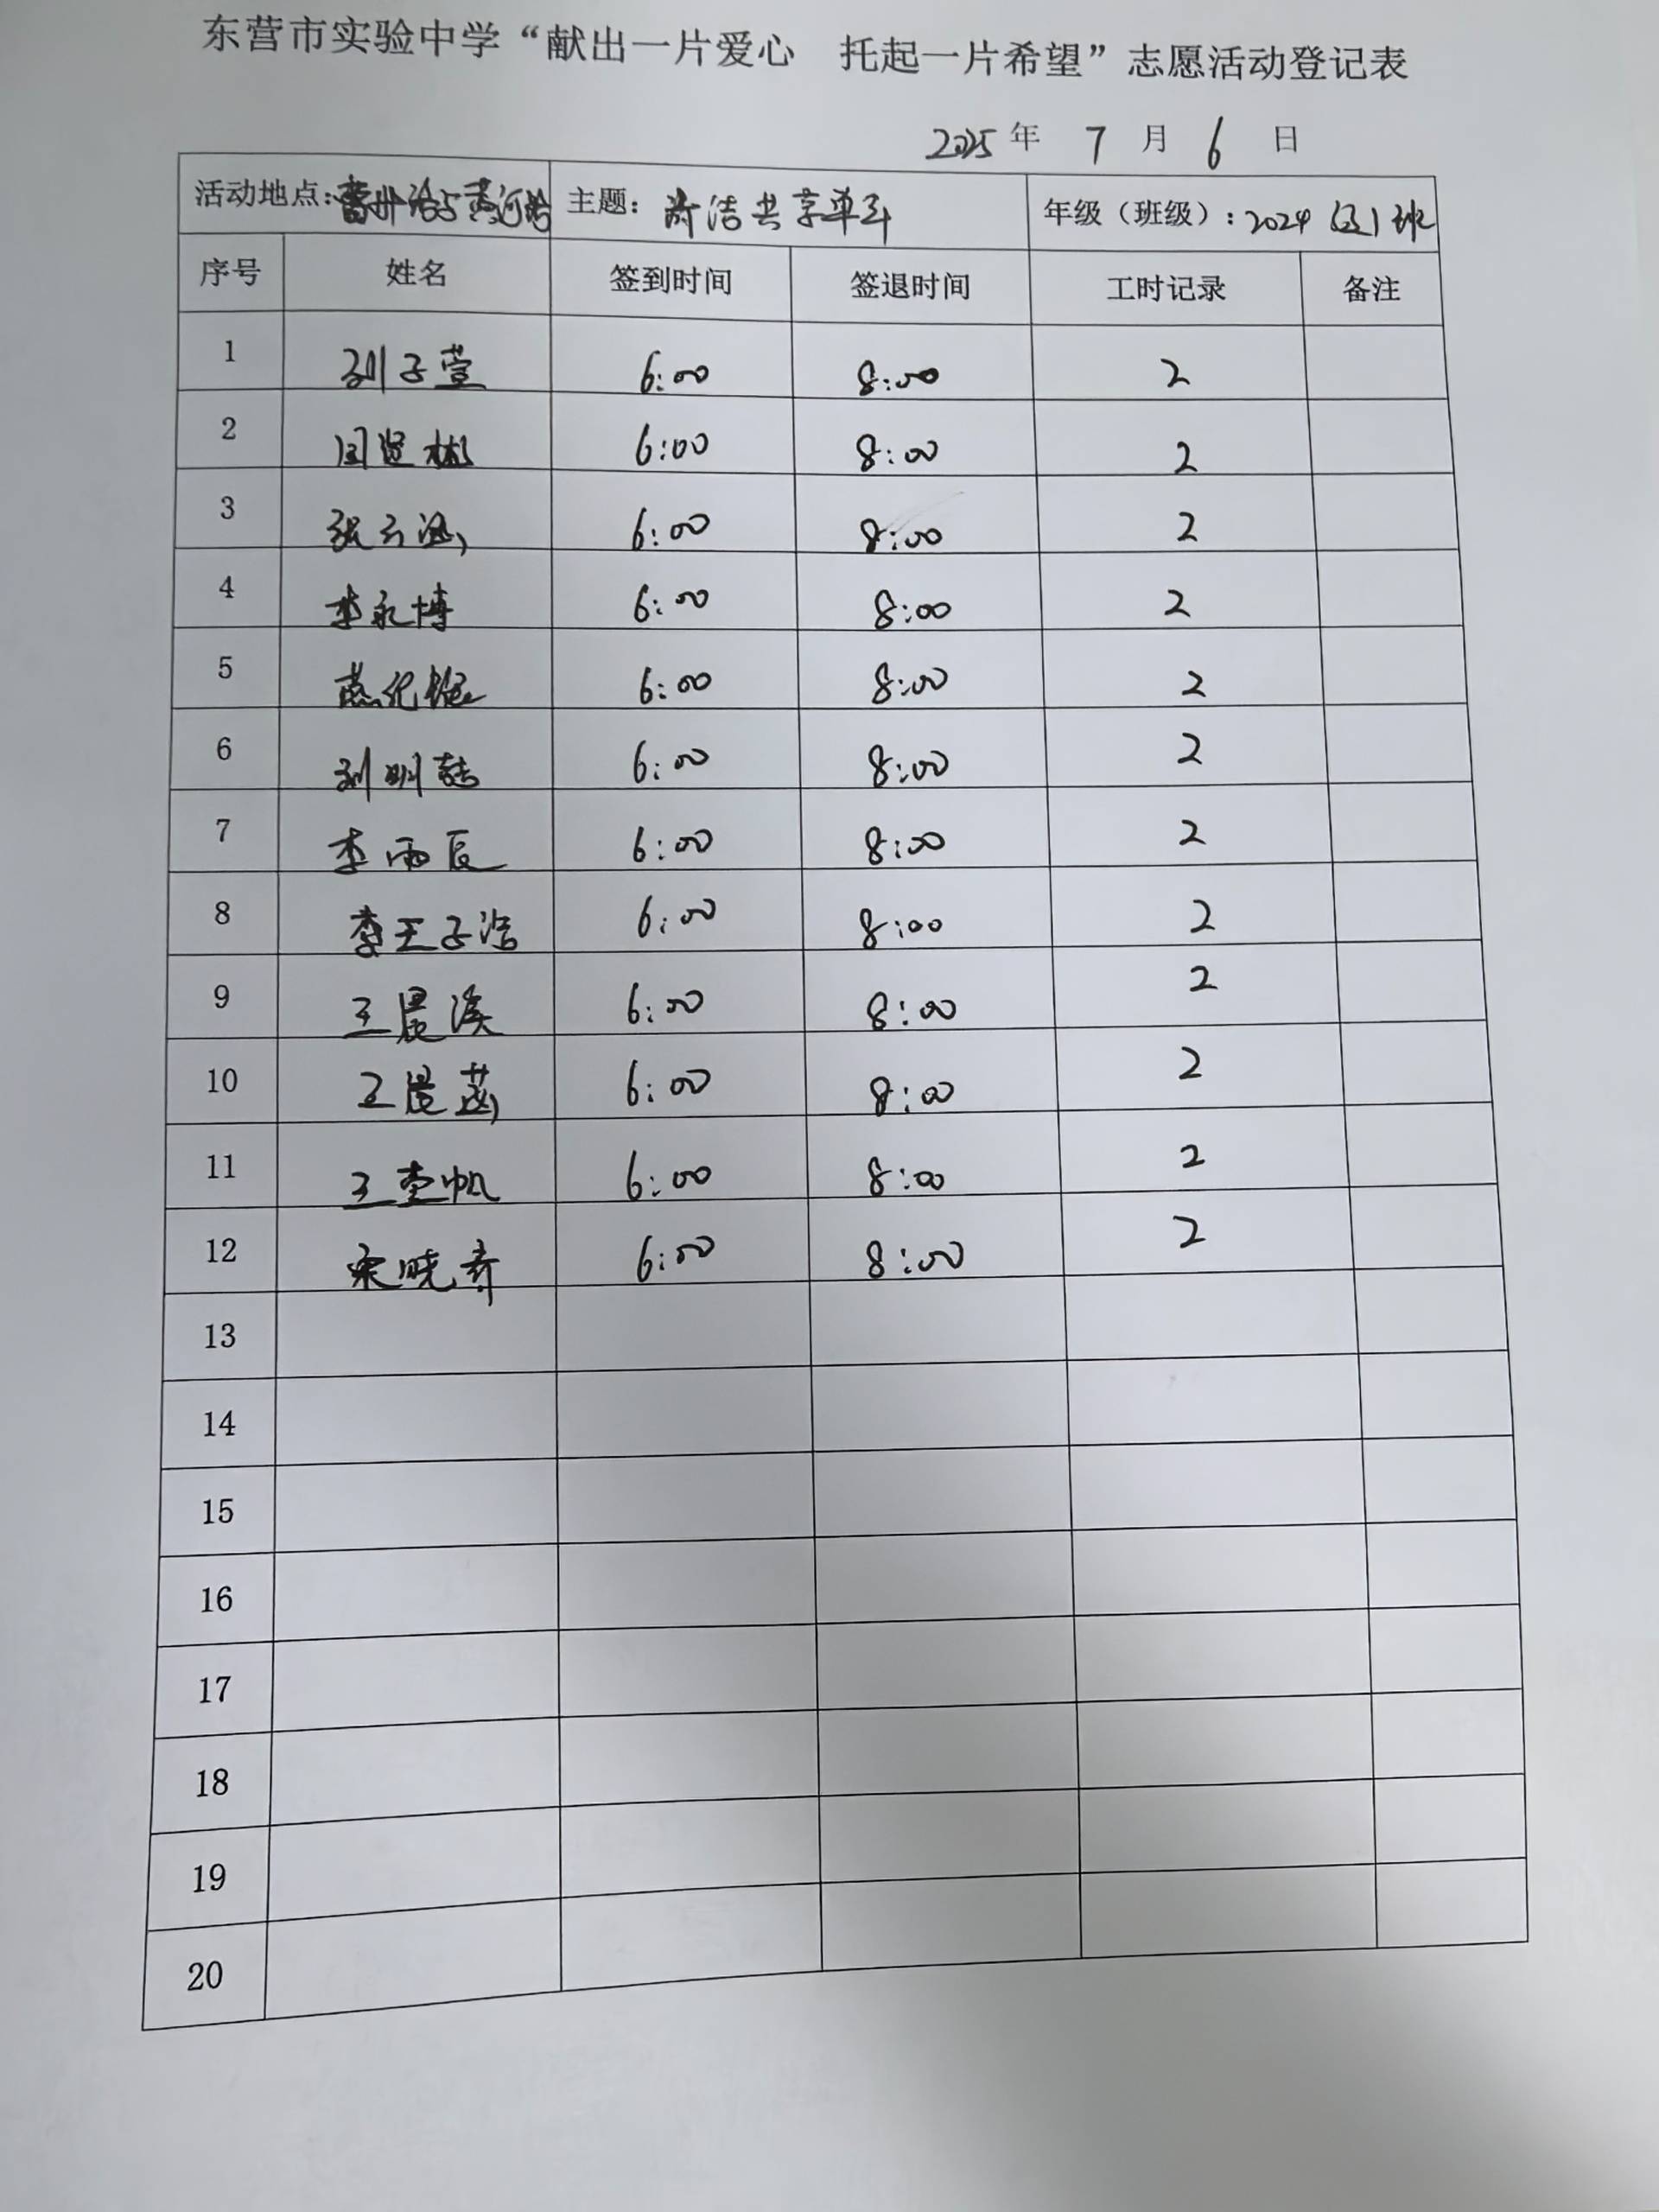 东营市实验中学“献出一片爱心 托起一片希望”志愿活动登记表
2025年 7 月 6 日
活动地点: 主题: 清洁共享单车 年级（班级）: 2024 班
序号 姓名 签到时间 签退时间 工时记录 备注
1 刘子萱 6:00 8:00 2
2 6:00 8:00 2
3 张云涵 6:00 8:00 2
4 李永博 6:00 8:00 2
5 6:00 8:00 2
6 刘明喆 6:00 8:00 2
7 李雨辰 6:00 8:00 2
8 李王子浩 6:00 8:00 2
9 王晨溪 6:00 8:00 2
10 王晨菡 6:00 8:00 2
11 王奎帆 6:00 8:00 2
12 宋晓奇 6:00 8:00 2
13
14
15
16
17
18
19
20